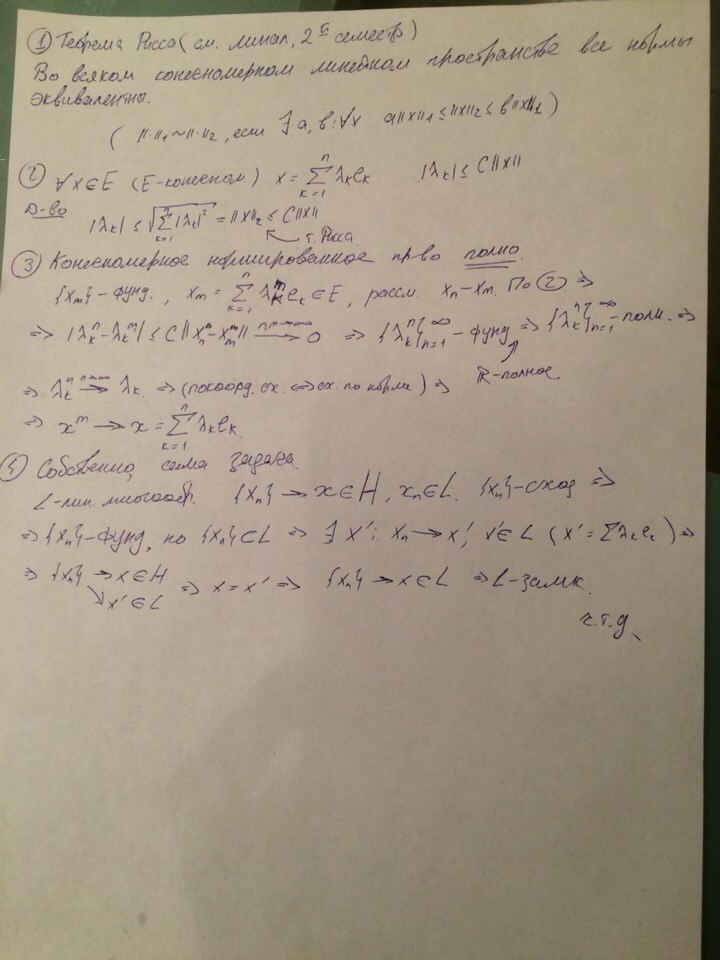 ① Теорема Рисса (см. линал, 2ᴵᴵ семестр)
Во всяком конечномерном линейном пространстве все нормы
эквивалентны.
( ||·||₁ ~ ||·||₂, если ∃ a, b : ∀x a||x||₁ ≤ ||x||₂ ≤ b||x||₁ )
② ∀x∈E (E-конечном.) x = Σ_{k=1}^{n} λₖeₖ |λₖ| ≤ C||x||
Д-во |λₖ| ≤ √(Σ_{k=1}^{n} |λₖ|²) = ||x||₂ ≤ C||x||
т. Рисса
③ Конечномерное нормированное пр-во полно.
{xₘ} - фунд., xₘ = Σ_{k=1}^{n} λₖᵐeₖ ∈ E, рассм. xₙ - xₘ. По ② ⇒
⇒ |λₖⁿ - λₖᵐ| ≤ C||xⁿ - xᵐ|| → 0 (n,m→∞) ⇒ {λₖⁿ}_{n=1}^{∞} - фунд ⇒ {λₖⁿ}_{n=1}^{∞} - полн. ⇒
ℝ-полное.
⇒ λₖⁿ → λₖ (n→∞) ⇒ (покоорд. сх. ⇔ сх. по норме) ⇒
⇒ xᵐ → x = Σ_{k=1}^{n} λₖeₖ.
④ Собственно, сама задача.
L-лин. многообр. {xₙ} → x∈H, xₙ∈L. {xₙ}-сход ⇒
⇒ {xₙ}-фунд, но {xₙ}⊂L ⇒ ∃ x' : xₙ → x', x'∈L (x' = Σλₖeₖ) ⇒
⇒ {xₙ} → x∈H ⇒ x = x' ⇒ {xₙ} → x∈L ⇒ L-замк.
↘ x'∈L
ч.т.д.